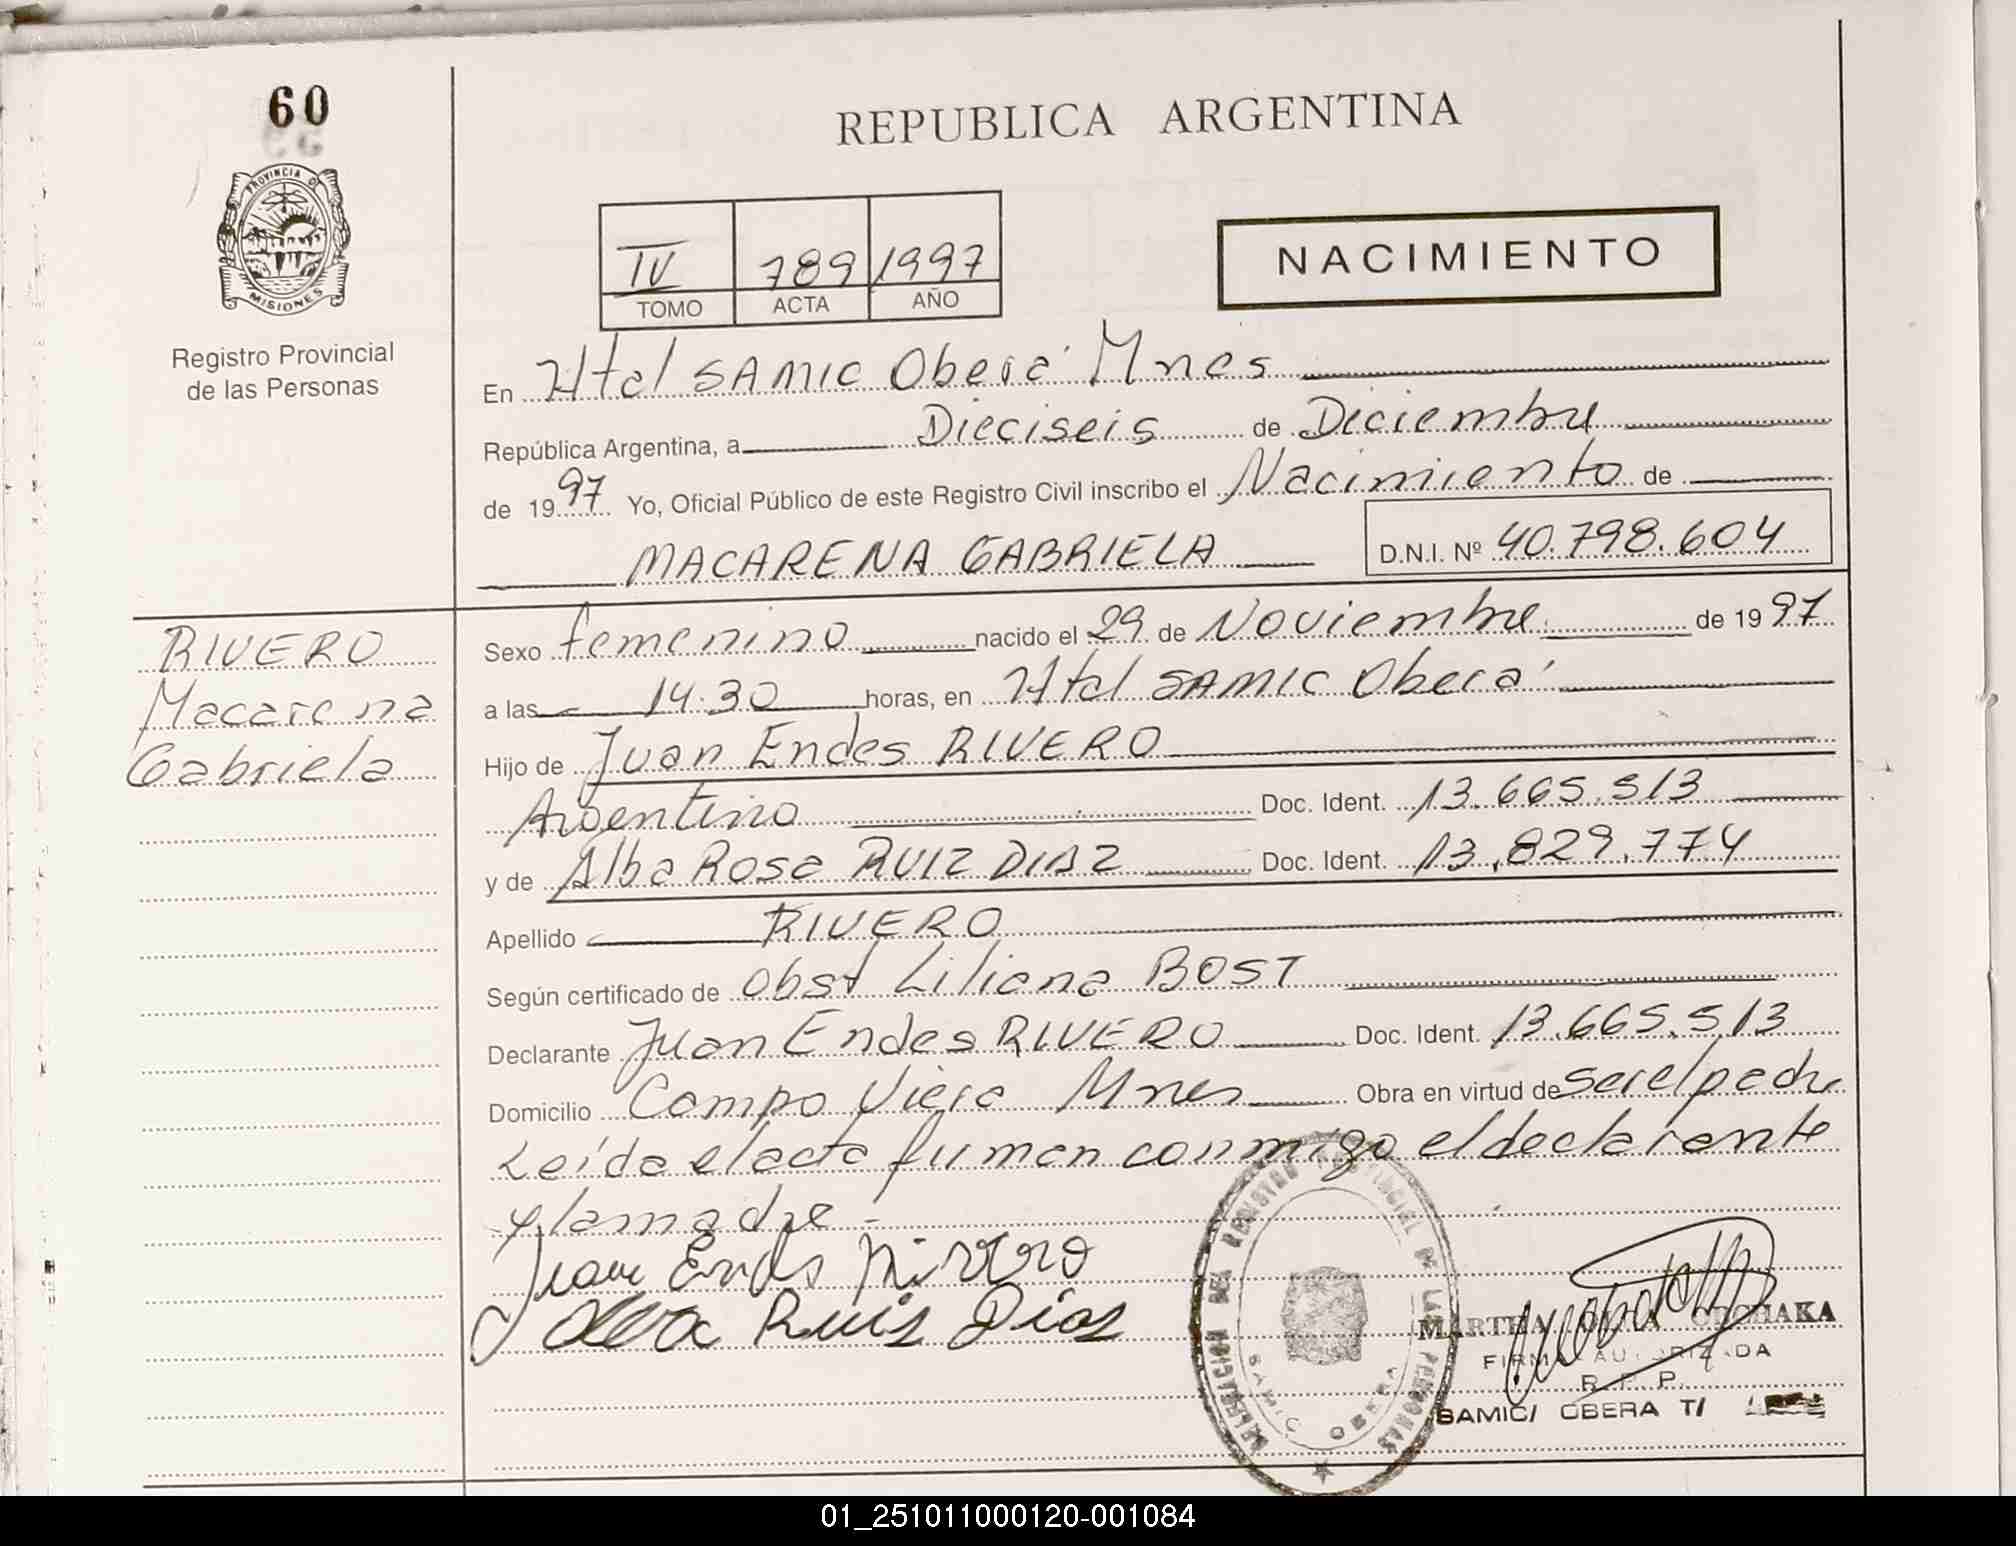 60
PROVINCIA D
MISIONES
Registro Provincial
de las Personas
REPUBLICA ARGENTINA
IV 789 1997
TOMO ACTA AÑO
NACIMIENTO
En Htal SAMIC Oberá Mnes
República Argentina, a Dieciseis de Diciembre
de 1997 Yo, Oficial Público de este Registro Civil inscribo el Nacimiento de
MACARENA GABRIELA D.N.I. Nº 40.798.604
RIVERO
Macarena
Gabriela
Sexo femenino nacido el 29 de Noviembre de 1997
a las 14.30 horas, en Htal SAMIC Oberá
Hijo de Juan Endes RIVERO
Argentino Doc. Ident. 13.665.513
y de Alba Rosa RUIZ DIAZ Doc. Ident. 13.829.774
Apellido RIVERO
Según certificado de Obst Liliana BOST
Declarante Juan Endes RIVERO Doc. Ident. 13.665.513
Domicilio Campo Viera Mnes Obra en virtud de ser el padre
Leída el acta firman conmigo el declarante
y la madre -
Juan Endes Rivero
Alba Ruiz Dias
DELEGACION DEL REGISTRO PROVINCIAL DE LAS PERSONAS
SAMIC OBERA
MARTHA
FIRMA AUTORIZADA
R. P. P.
SAMIC/ OBERA T/
01_251011000120-001084